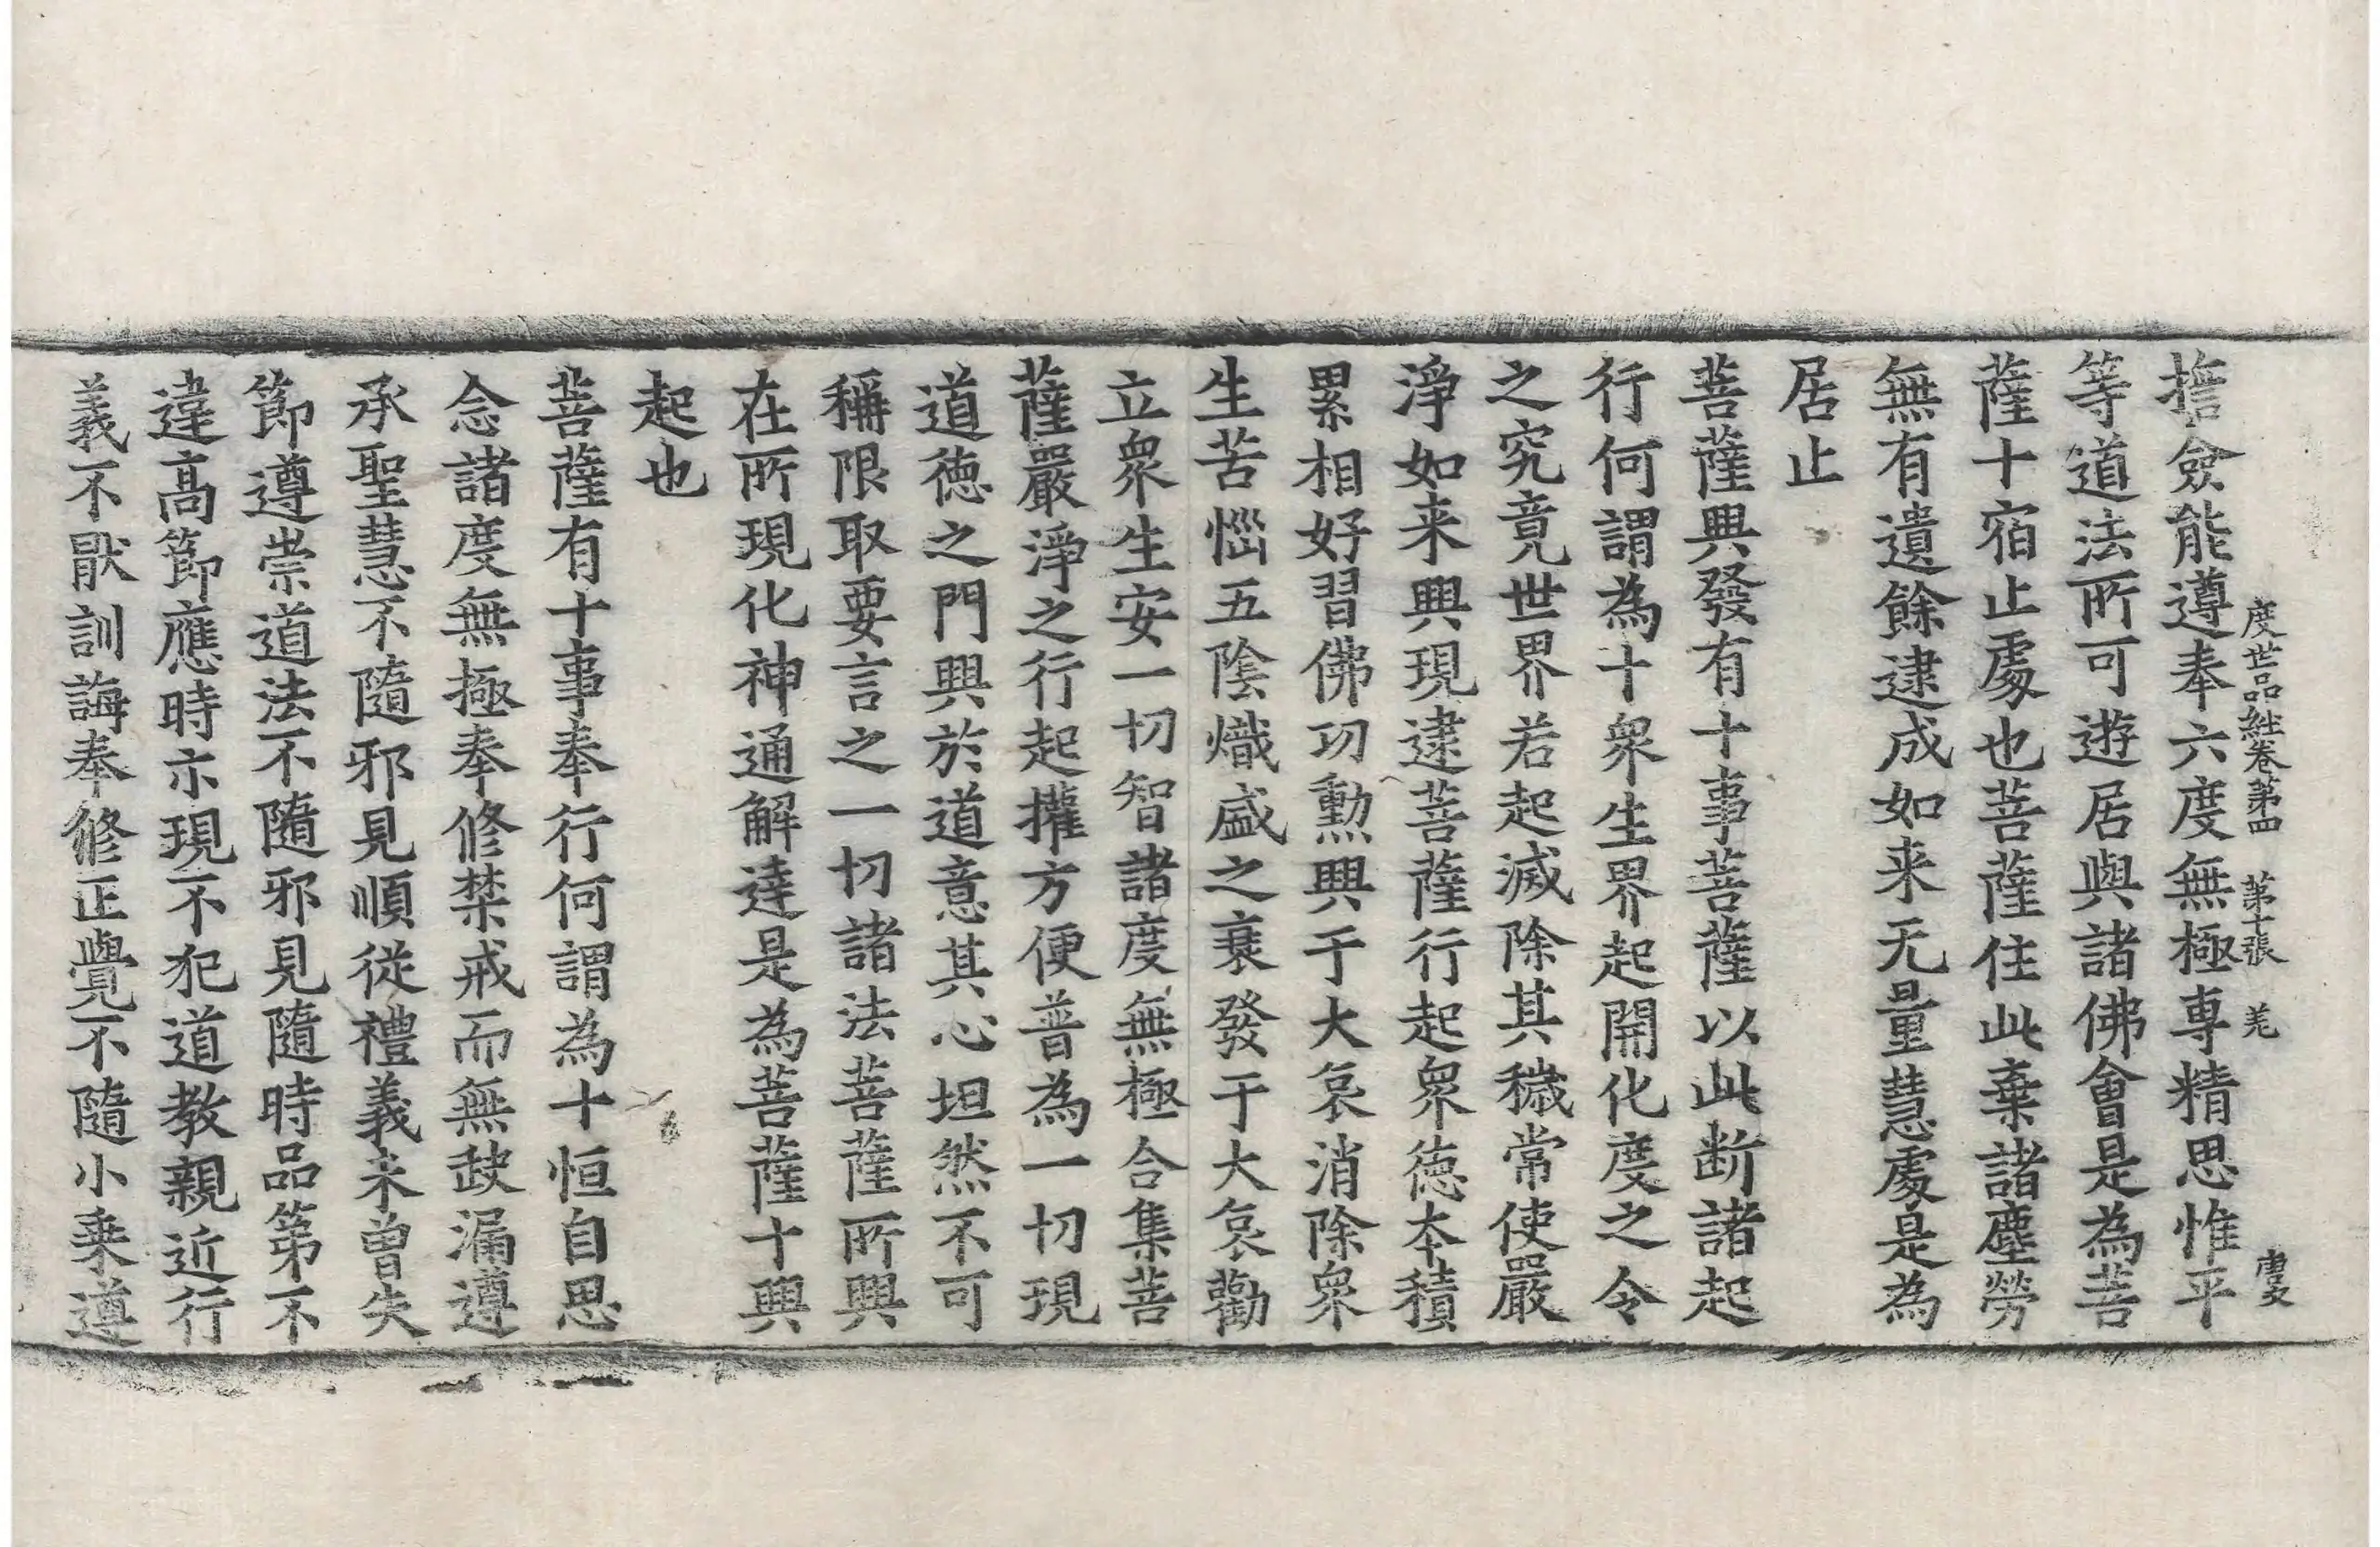 度世品經卷第四 第十張 羌
擔僉能遵奉六度無極專精思惟平
等道法所可遊居與諸佛會是為菩
薩十宿止處也菩薩住此棄諸塵勞
無有遺餘逮成如来无量慧處是為
居止
菩薩興發有十事菩薩以此断諸起
行何謂為十衆生界起開化度之令
之究竟世界若起滅除其穢常使嚴
淨如来興現逮菩薩行起衆德夲積
累相好習佛功勲興于大哀消除衆
生苦惱五陰熾盛之衰發于大哀勸
立衆生安一切智諸度無極合集菩
薩嚴淨之行起權方便普為一切現
道徳之門興於道意其心坦然不可
稱限取要言之一切諸法菩薩所興
在所現化神通解達是為菩薩十興
起也
菩薩有十事奉行何謂為十恒自思
念諸度無極奉修禁戒而無缺漏遵
承聖慧不隨邪見順從禮義未曾失
節遵崇道法不隨邪見隨時品第不
違高節應時亦現不犯道教親近行
義不厭訓誨奉修正覺不隨小乗遵